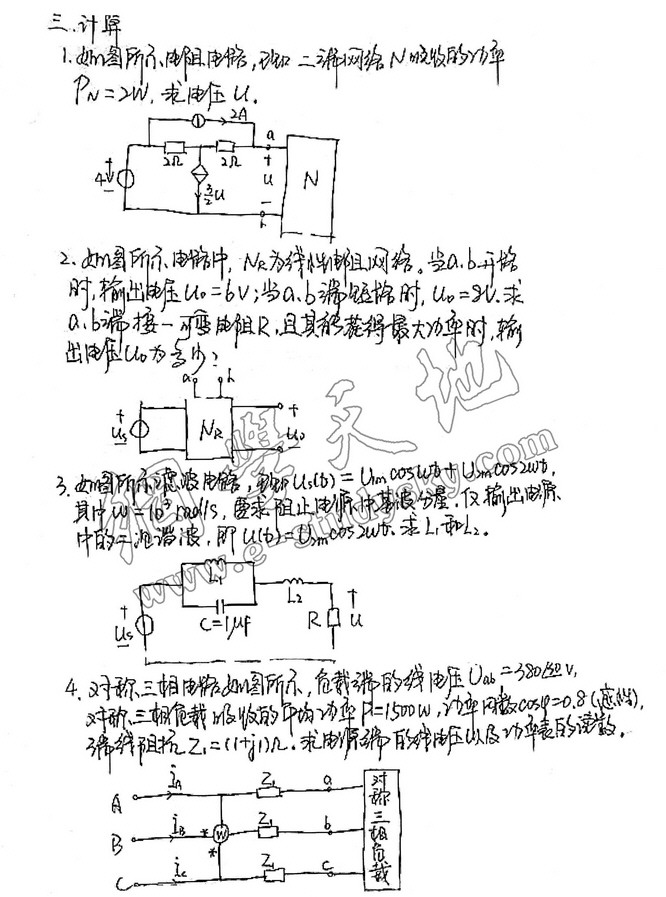 三、计算
1. 如图所示电阻电路，已知二端网络N吸收的功率
P_N=2W，求电压U。
2A
a
2Ω
2Ω
+
4V
-
3/2 U
+
U
-
b
N
2. 如图所示电路中，N_R为线性电阻网络。当a、b开路
时，输出电压U₀=6V；当a、b端短路时，U₀=8V。求
a、b端接一可变电阻R，且其能获得最大功率时，输
出电压U₀为多少？
a
b
+
Us
-
N_R
+
U₀
-
3. 如图所示滤波电路，已知Us(t)=U₁ₘcosωt+U₂ₘcos2ωt，
其中ω=10³rad/s，要求阻止电源中基波分量，仅输出电源
中的二次谐波，即U(t)=U₂ₘcos2ωt。求L₁和L₂。
L₁
C=1μf
L₂
+
Us
-
R
+
U
-
4. 对称三相电路如图所示，负载端的线电压U_ab=380∠0°V，
对称三相负载吸收的平均功率P=1500W，功率因数cosφ=0.8(感性)，
端线阻抗Z₁=(1+j1)Ω。求电源端的线电压以及功率表的读数。
A
i_A
Z₁
a
B
i_B
*
W
*
Z₁
b
C
i_C
Z₁
c
对称三相负载
網學天地
www.e-studysky.com